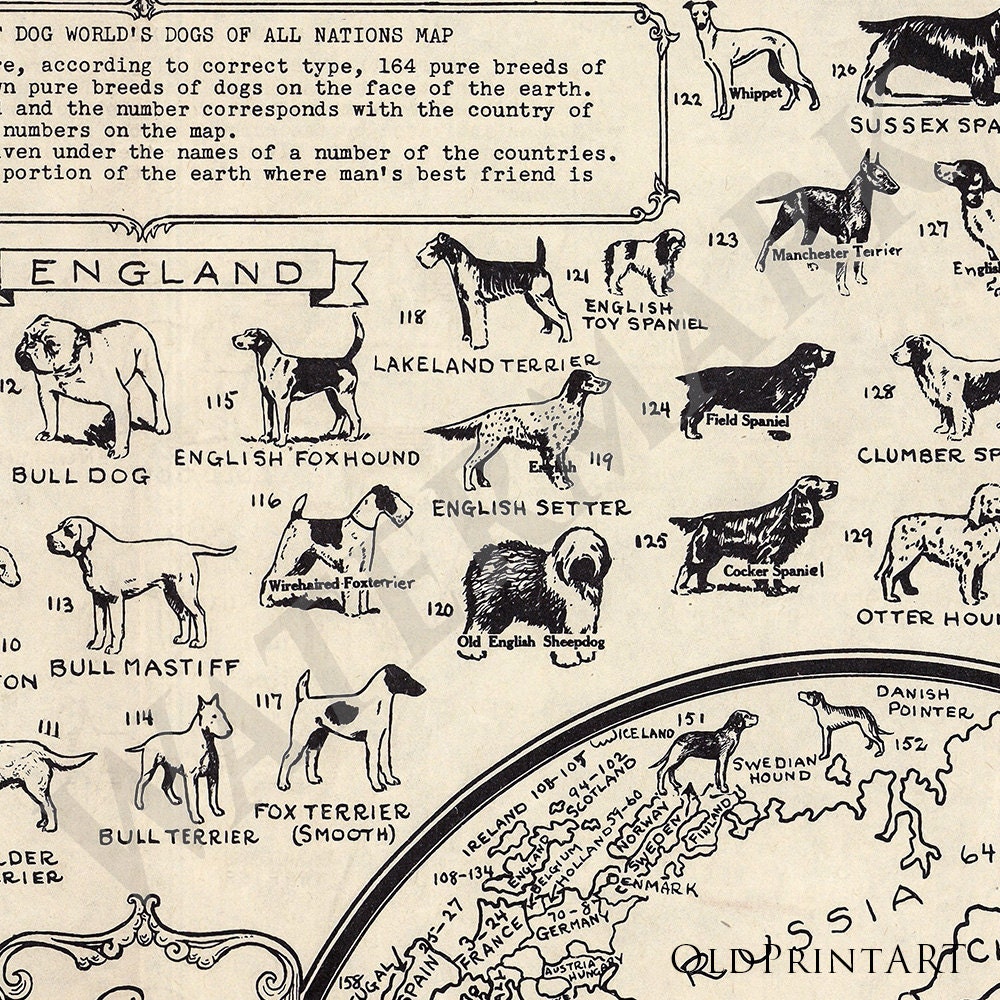 DOG WORLD'S DOGS OF ALL NATIONS MAP
according to correct type, 164 pure breeds of
pure breeds of dogs on the face of the earth.
and the number corresponds with the country of
numbers on the map.
under the names of a number of the countries.
portion of the earth where man's best friend is
122 Whippet
126
SUSSEX SPA
ENGLAND
118
LAKELAND TERRIER
121
ENGLISH
TOY SPANIEL
123
Manchester Terrier
127
English
12
BULL DOG
115
ENGLISH FOXHOUND
119
ENGLISH SETTER
124
Field Spaniel
128
CLUMBER SP
113
BULL MASTIFF
116
Wirehaired Foxterrier
120
Old English Sheepdog
125
Cocker Spaniel
129
OTTER HOU
10
TON
111
LDER
RIER
114
BULL TERRIER
117
FOX TERRIER
(SMOOTH)
151
SWEDIAN
HOUND
DANISH
POINTER
152
ICELAND
IRELAND 108-105
94-102
SCOTLAND
59-60
NORWAY
SWEDEN
FINLAND
108-134
ENGLAND
BELGIUM
HOLLAND
DENMARK
70-87
GERMANY
FRANCE
25-27
SPAIN
158
UGAL
AUSTRIA
HUNGARY
RUSSIA
64
WATERMARK
OLDPRINTART